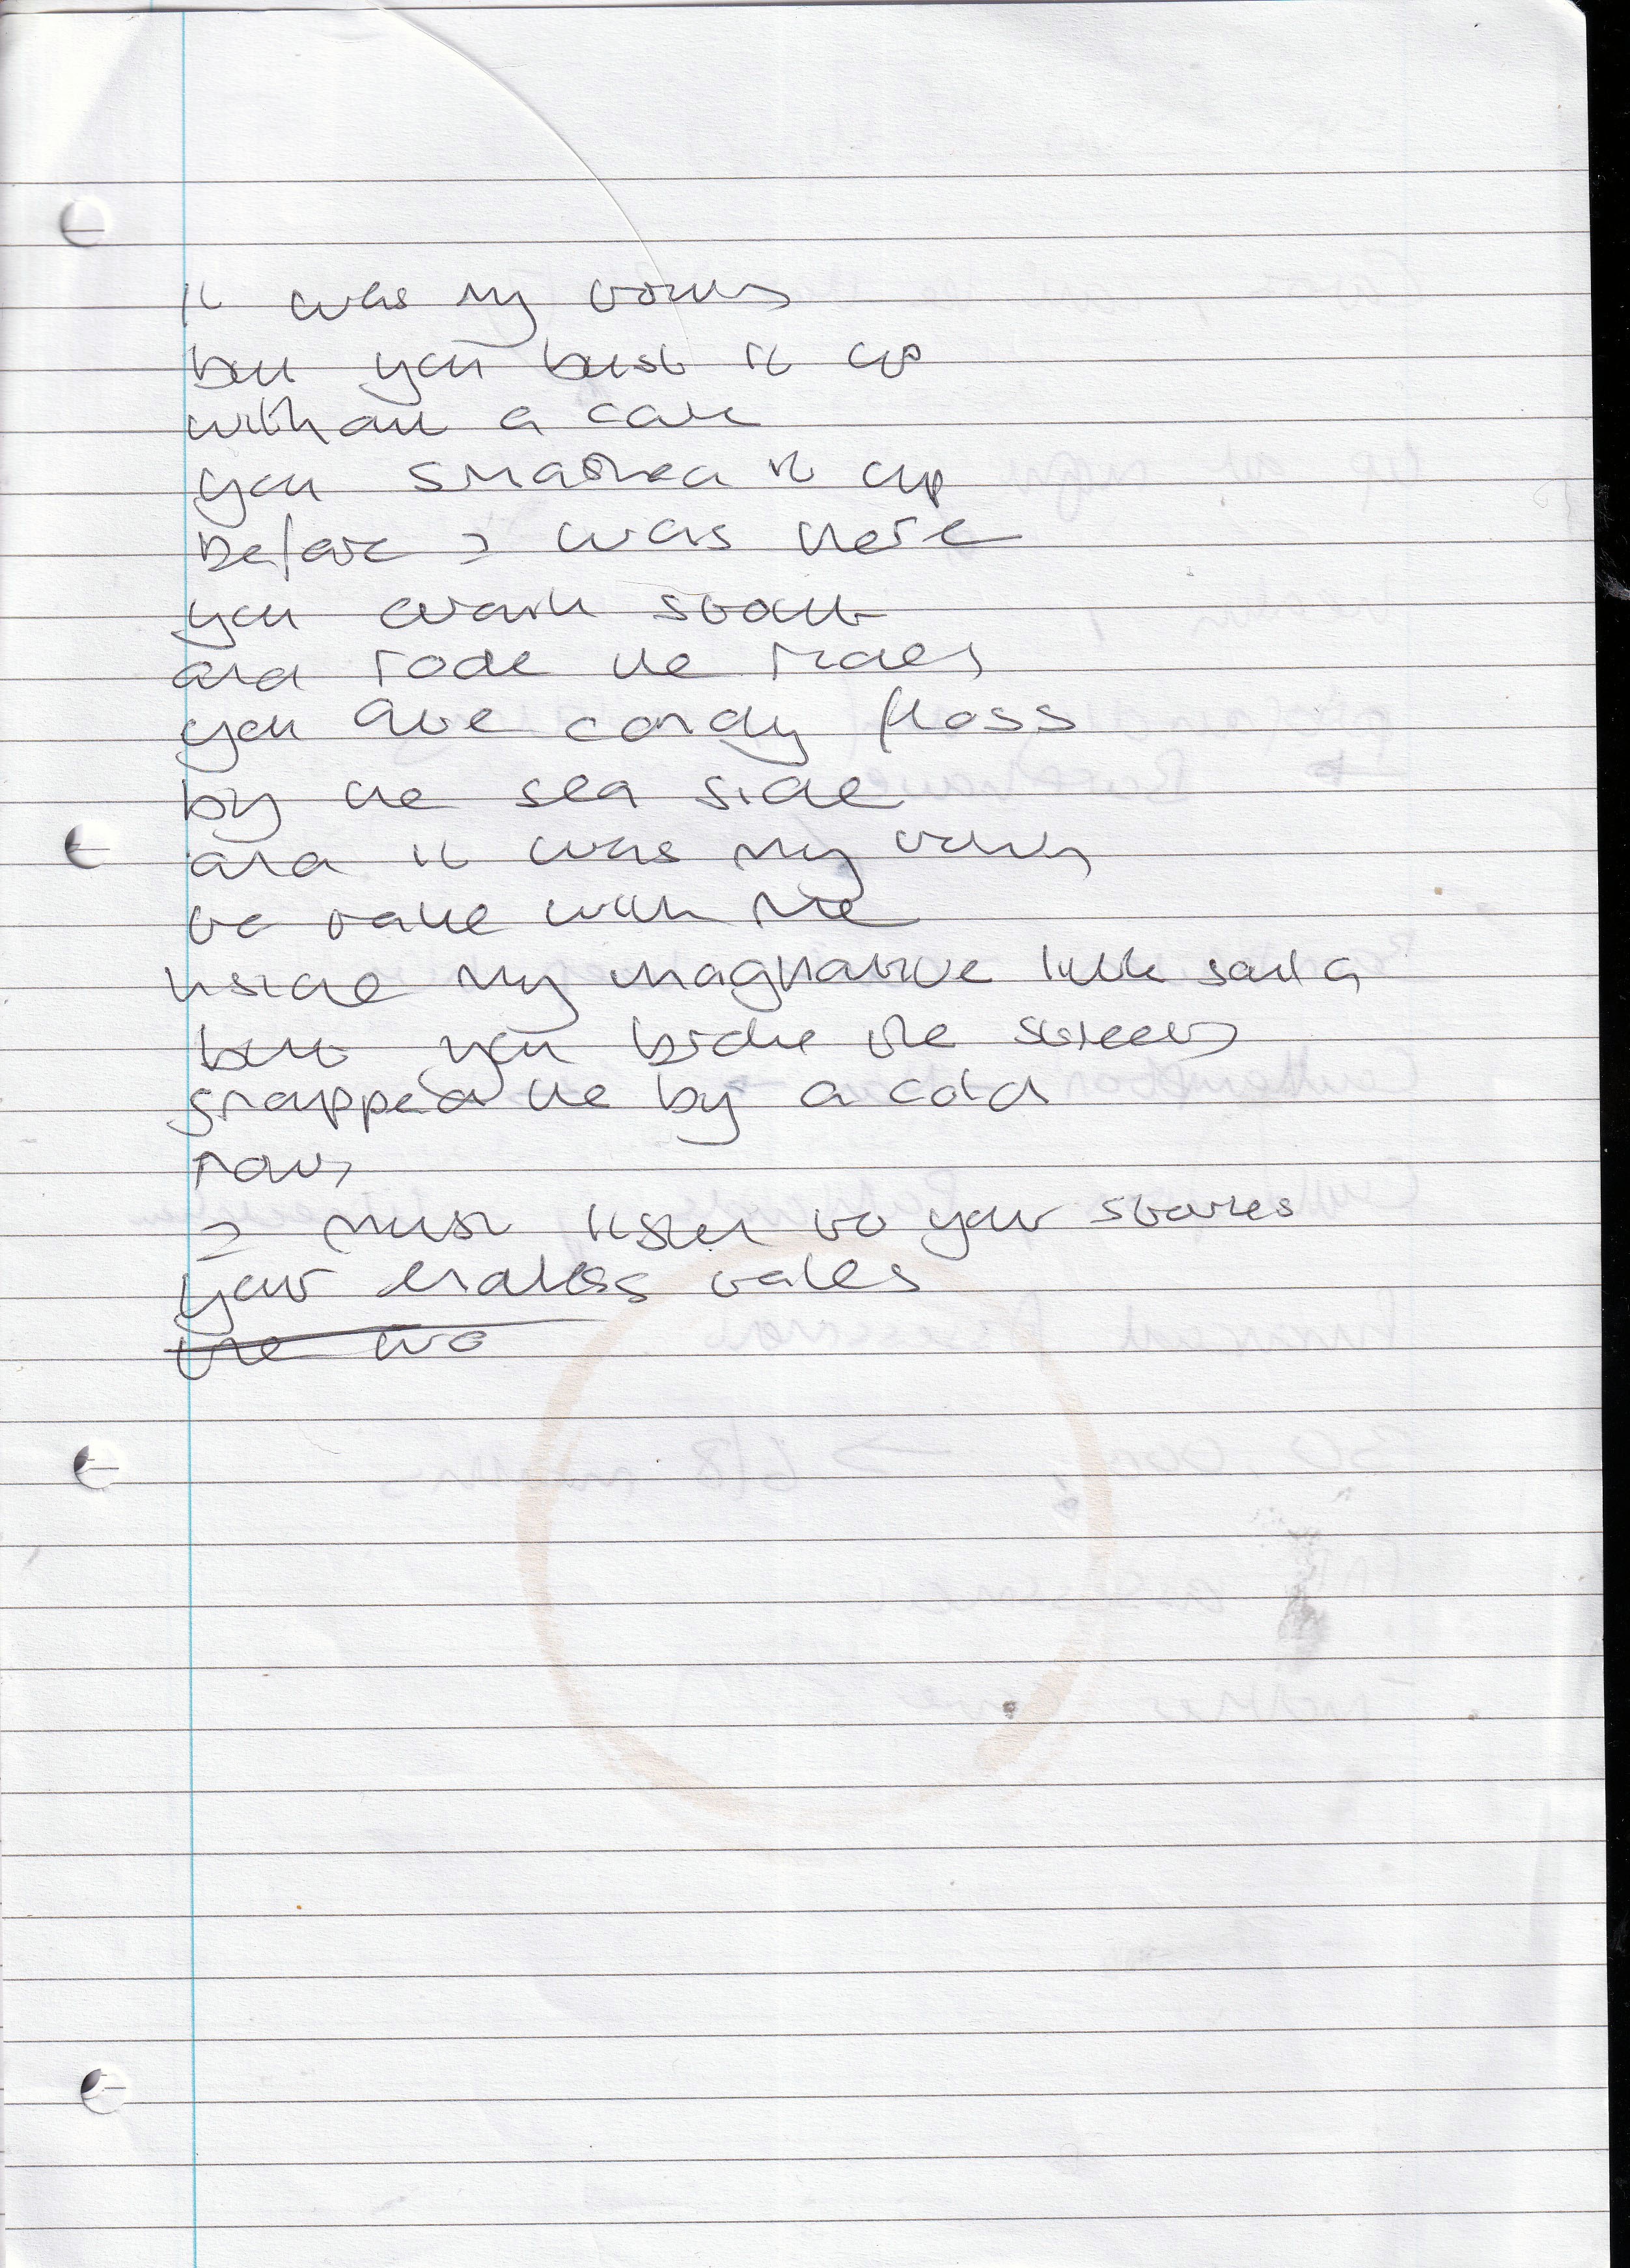 it was my town
but you bust it up
without a care
you smashed it up
before I was here
you drank stout
and rode the rides
you ate candy floss
by the sea side
and it was my town
to take with me
inside my imaginative little
but you broke the streets
snapped the by a cold
now
I must listen to your stories
your endless tales
the